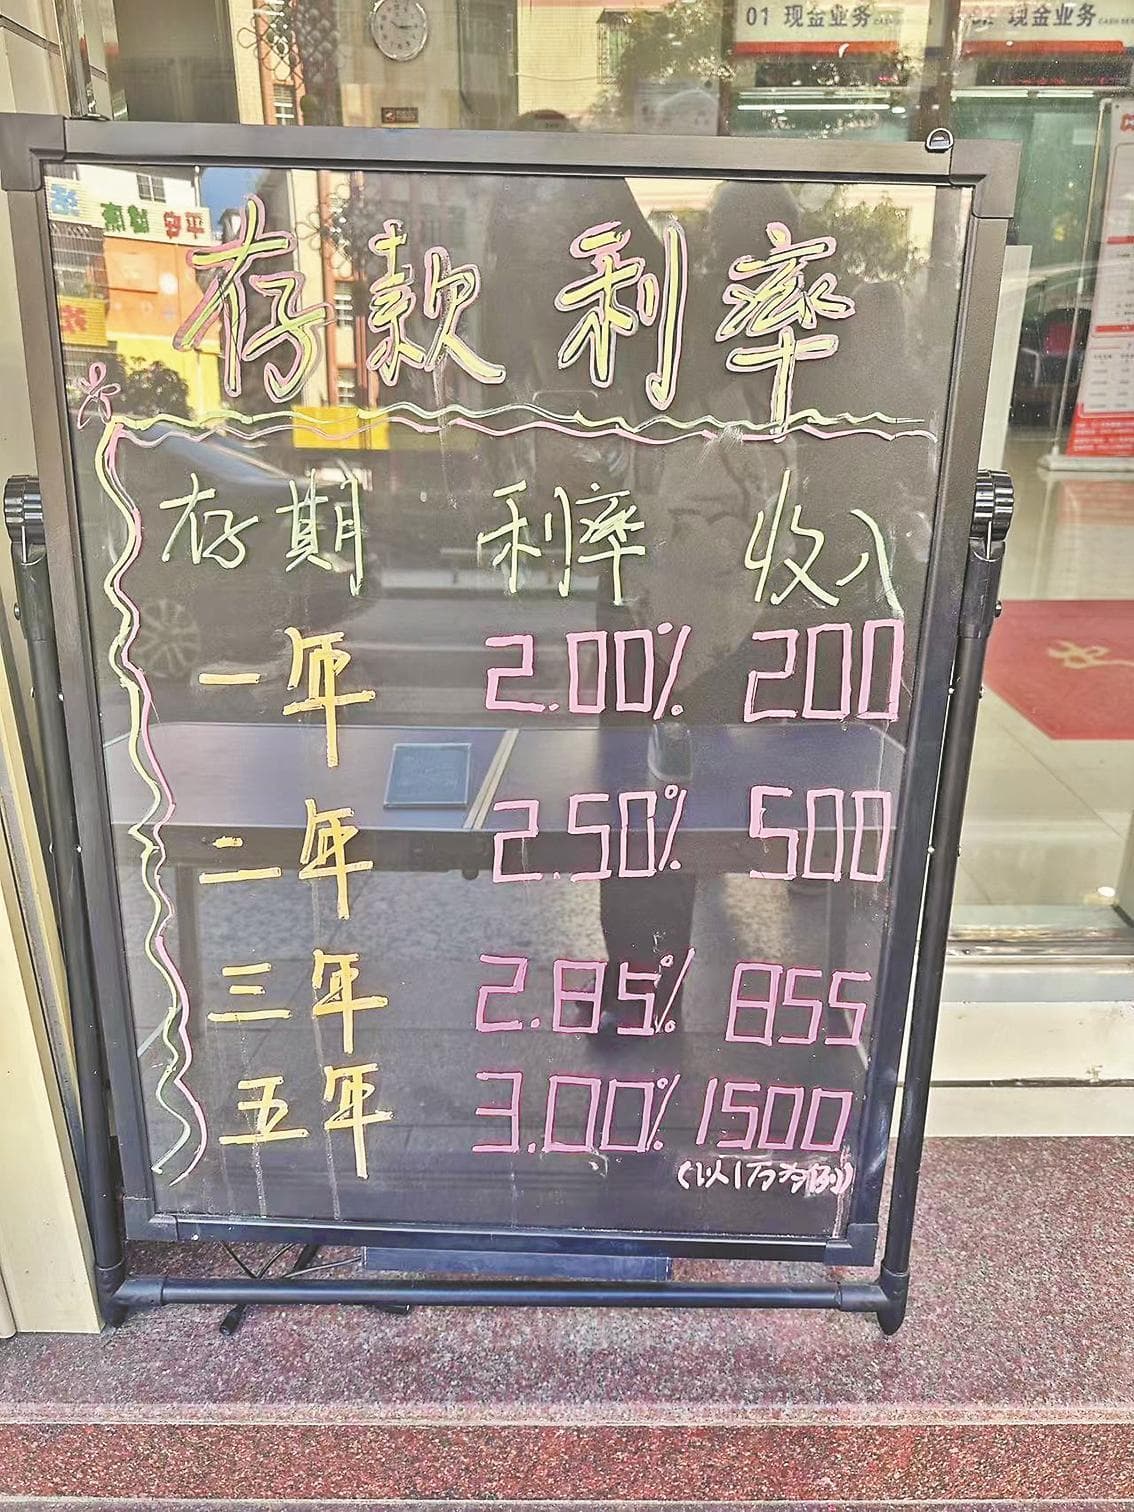 01 现金业务
02 现金业务
存款利率
存期 利率 收入
一年 2.00% 200
二年 2.50% 500
三年 2.85% 855
五年 3.00% 1500
(以1万为例)